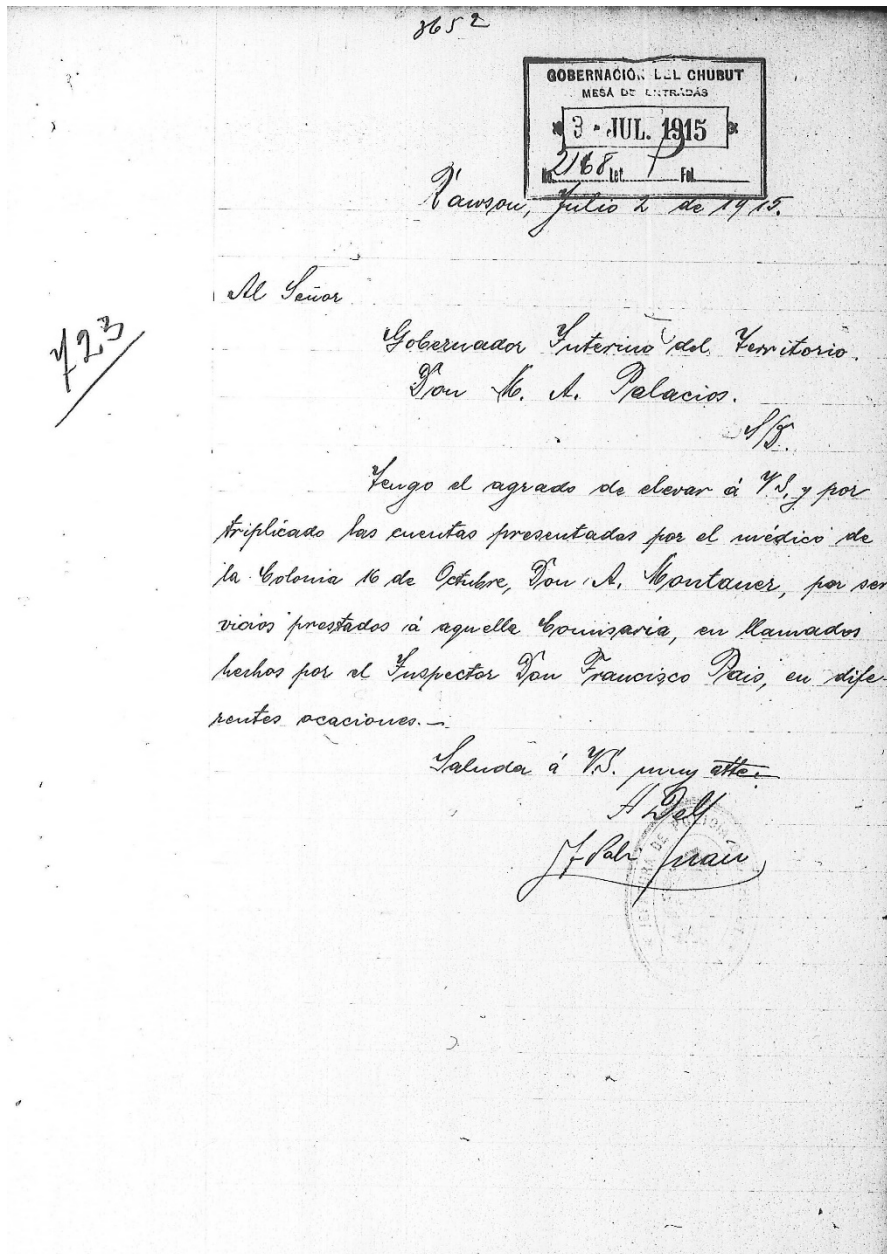 3652
GOBERNACIÓN DEL CHUBUT
MESA DE ENTRADAS
3 - JUL. 1915
No. 2168 Let. P Fol.
Rawson, Julio 2 de 1915.
Al Señor
723
Gobernador Interino del Territorio.
Don M. A. Palacios.
S/D.
Tengo el agrado de elevar á V.S. y por
triplicado las cuentas presentadas por el médico de
la Colonia 16 de Octubre, Don A. Montaner, por ser
vicios prestados á aquella Comisaria, en llamados
hechos por el Inspector Don Francisco Pais, en dife-
rentes ocaciones.—
Saluda á V.S. muy atte.
JEFATURA DE POLICIA